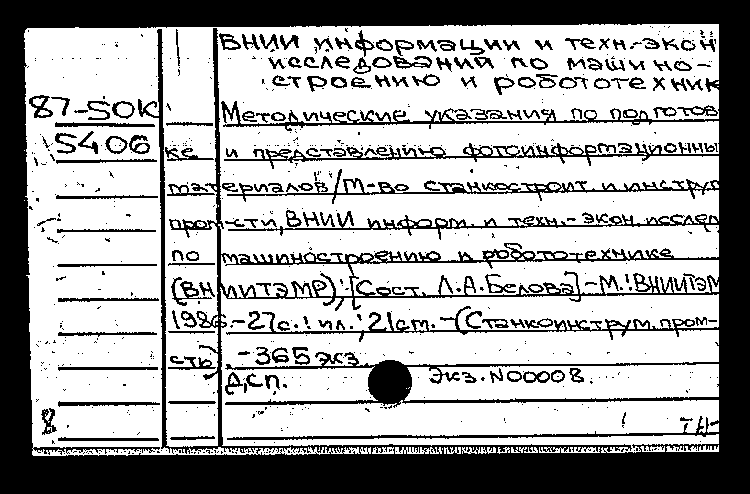 ВНИИ информации и техн.-экон
исследований по машино-
строению и робототехник
87-50К Методические указания по подготов
5406 ке и представлению фотоинформационны
материалов/М-во станкостроит. и инструм
пром-сти, ВНИИ информ. и техн.-экон. исслед
по машиностроению и робототехнике
(ВНИИТЭМР); [Сост. Л.А.Белова]-М.:ВНИИТЭМ
1986.-27с.: ил.; 21см.-(Станкоинструм. пром-
сть). -365 экз.
Дсп. Экз. N00008.
8